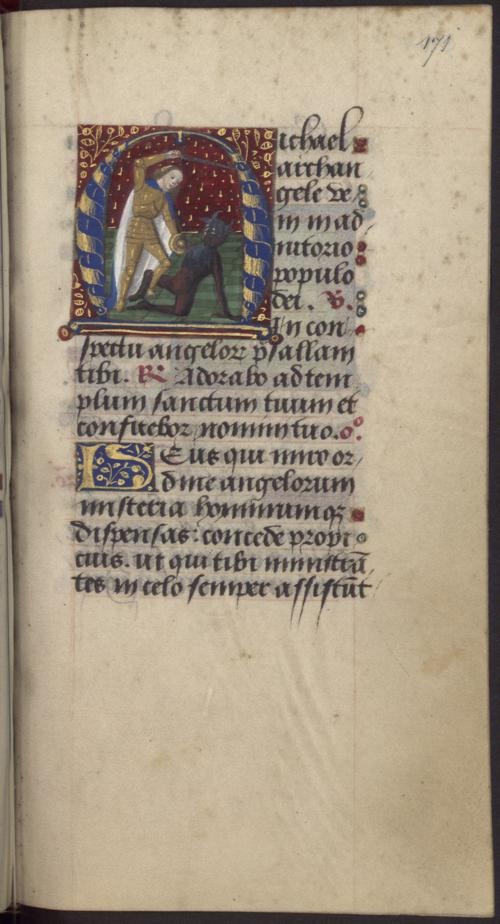 171
Michael
archan
gele ve
ni in ad
iutorio
populo
dei. V.
In con
spectu angelorz psallam
tibi. R. Adorabo ad tem
plum sanctum tuum et
confitebor nomini tuo. o.
Deus qui miro or
dine angelorum
misteria hominumqz
dispensas: concede propi
cius. ut qui tibi ministrā
tes in celo semper assistūt